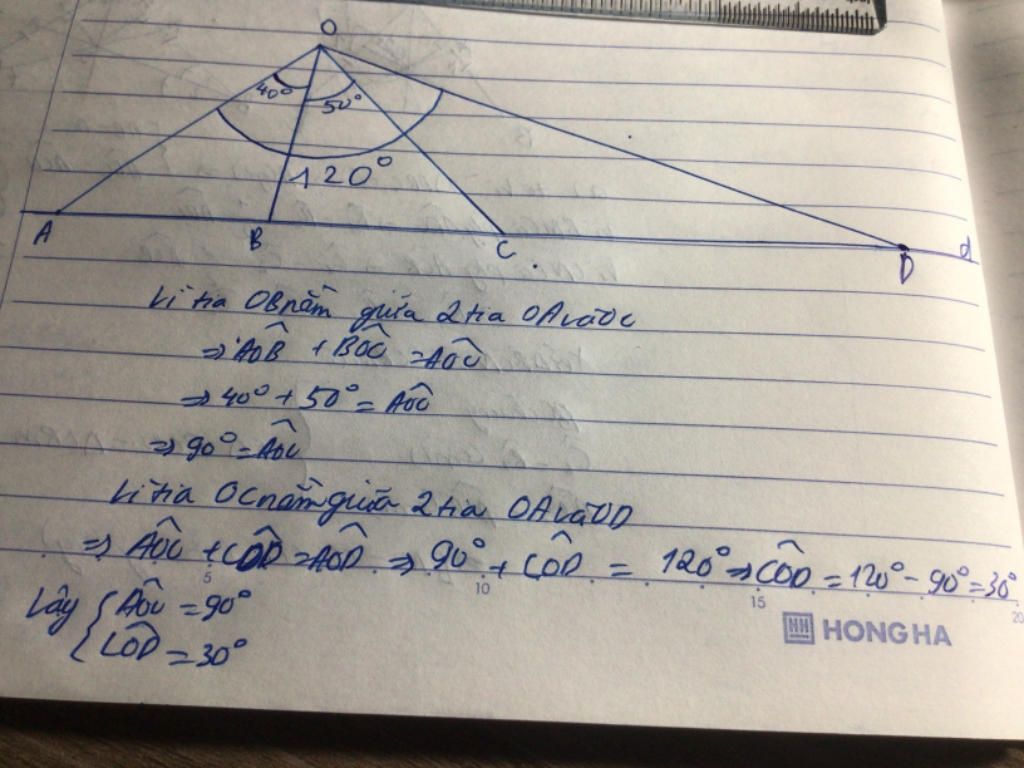 O
40° 50°
120°
A B C D d
Vì tia OB nằm giữa 2 tia OA và OC
⇒ AÔB + BÔC = AÔC
⇒ 40° + 50° = AÔC
⇒ 90° = AÔC
Vì tia OC nằm giữa 2 tia OA và OD
⇒ AÔC + CÔD = AÔD ⇒ 90° + CÔD = 120° ⇒ CÔD = 120° - 90° = 30°
5 10 15 20
Vậy { AÔC = 90°
CÔD = 30°
HH HONG HA